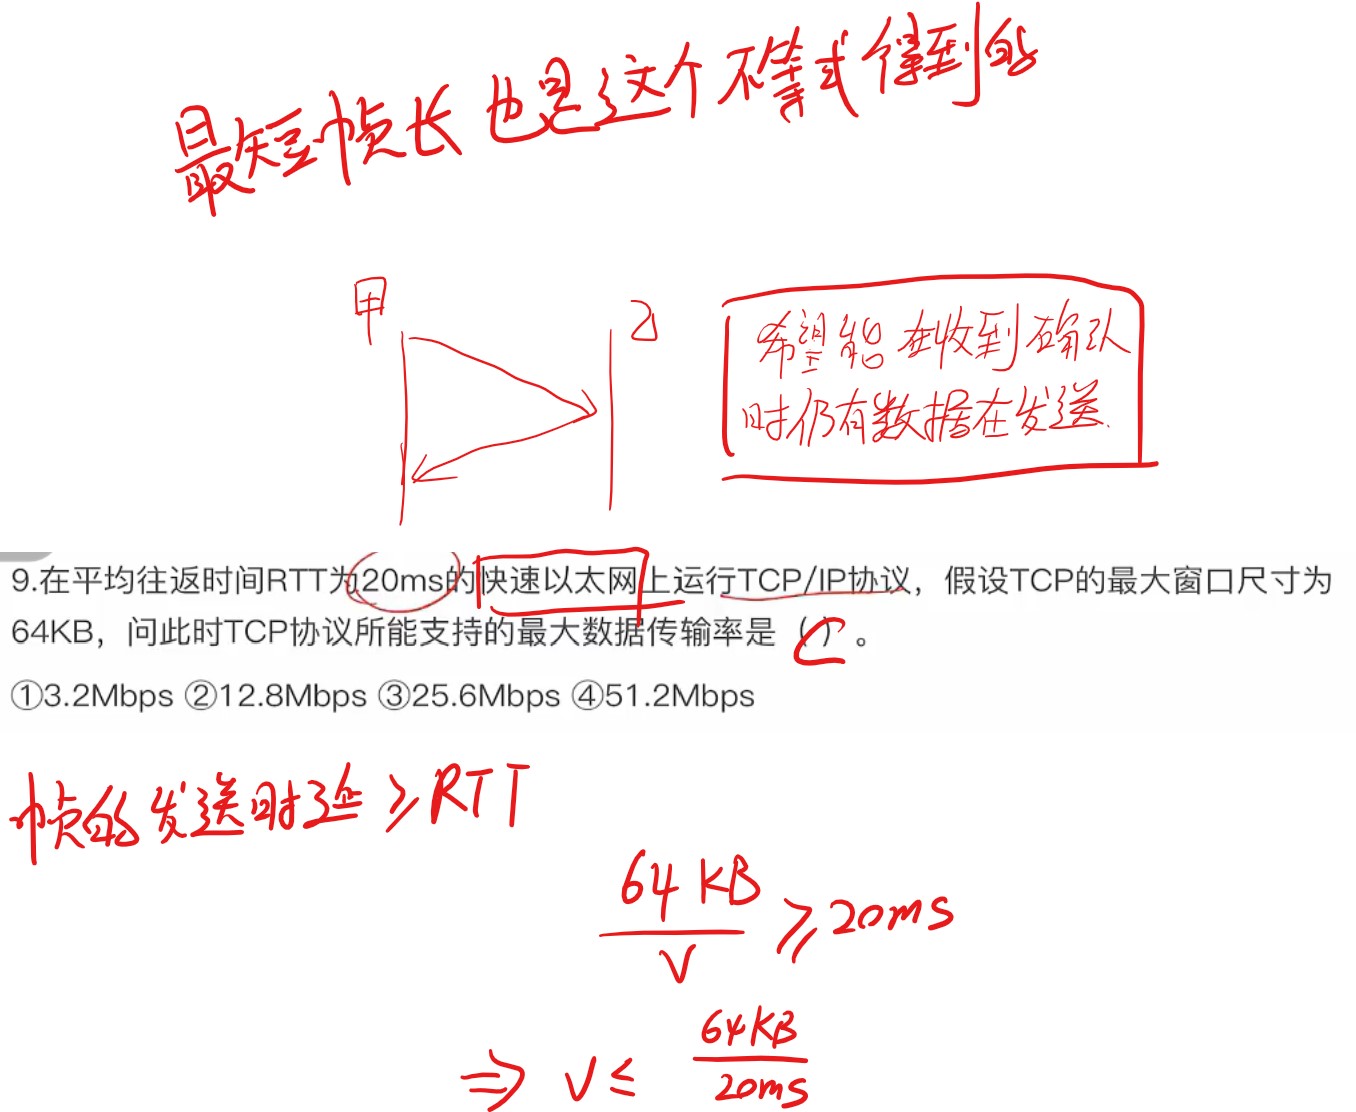 最短帧长也是这个不等式得到的
甲
乙
希望能在收到确认
时仍有数据在发送.
9.在平均往返时间RTT为20ms的快速以太网上运行TCP/IP协议，假设TCP的最大窗口尺寸为
64KB，问此时TCP协议所能支持的最大数据传输率是（C）。
①3.2Mbps ②12.8Mbps ③25.6Mbps ④51.2Mbps
帧的发送时延≥RTT
64KB/V ≥20ms
⇒ V≤ 64KB/20ms